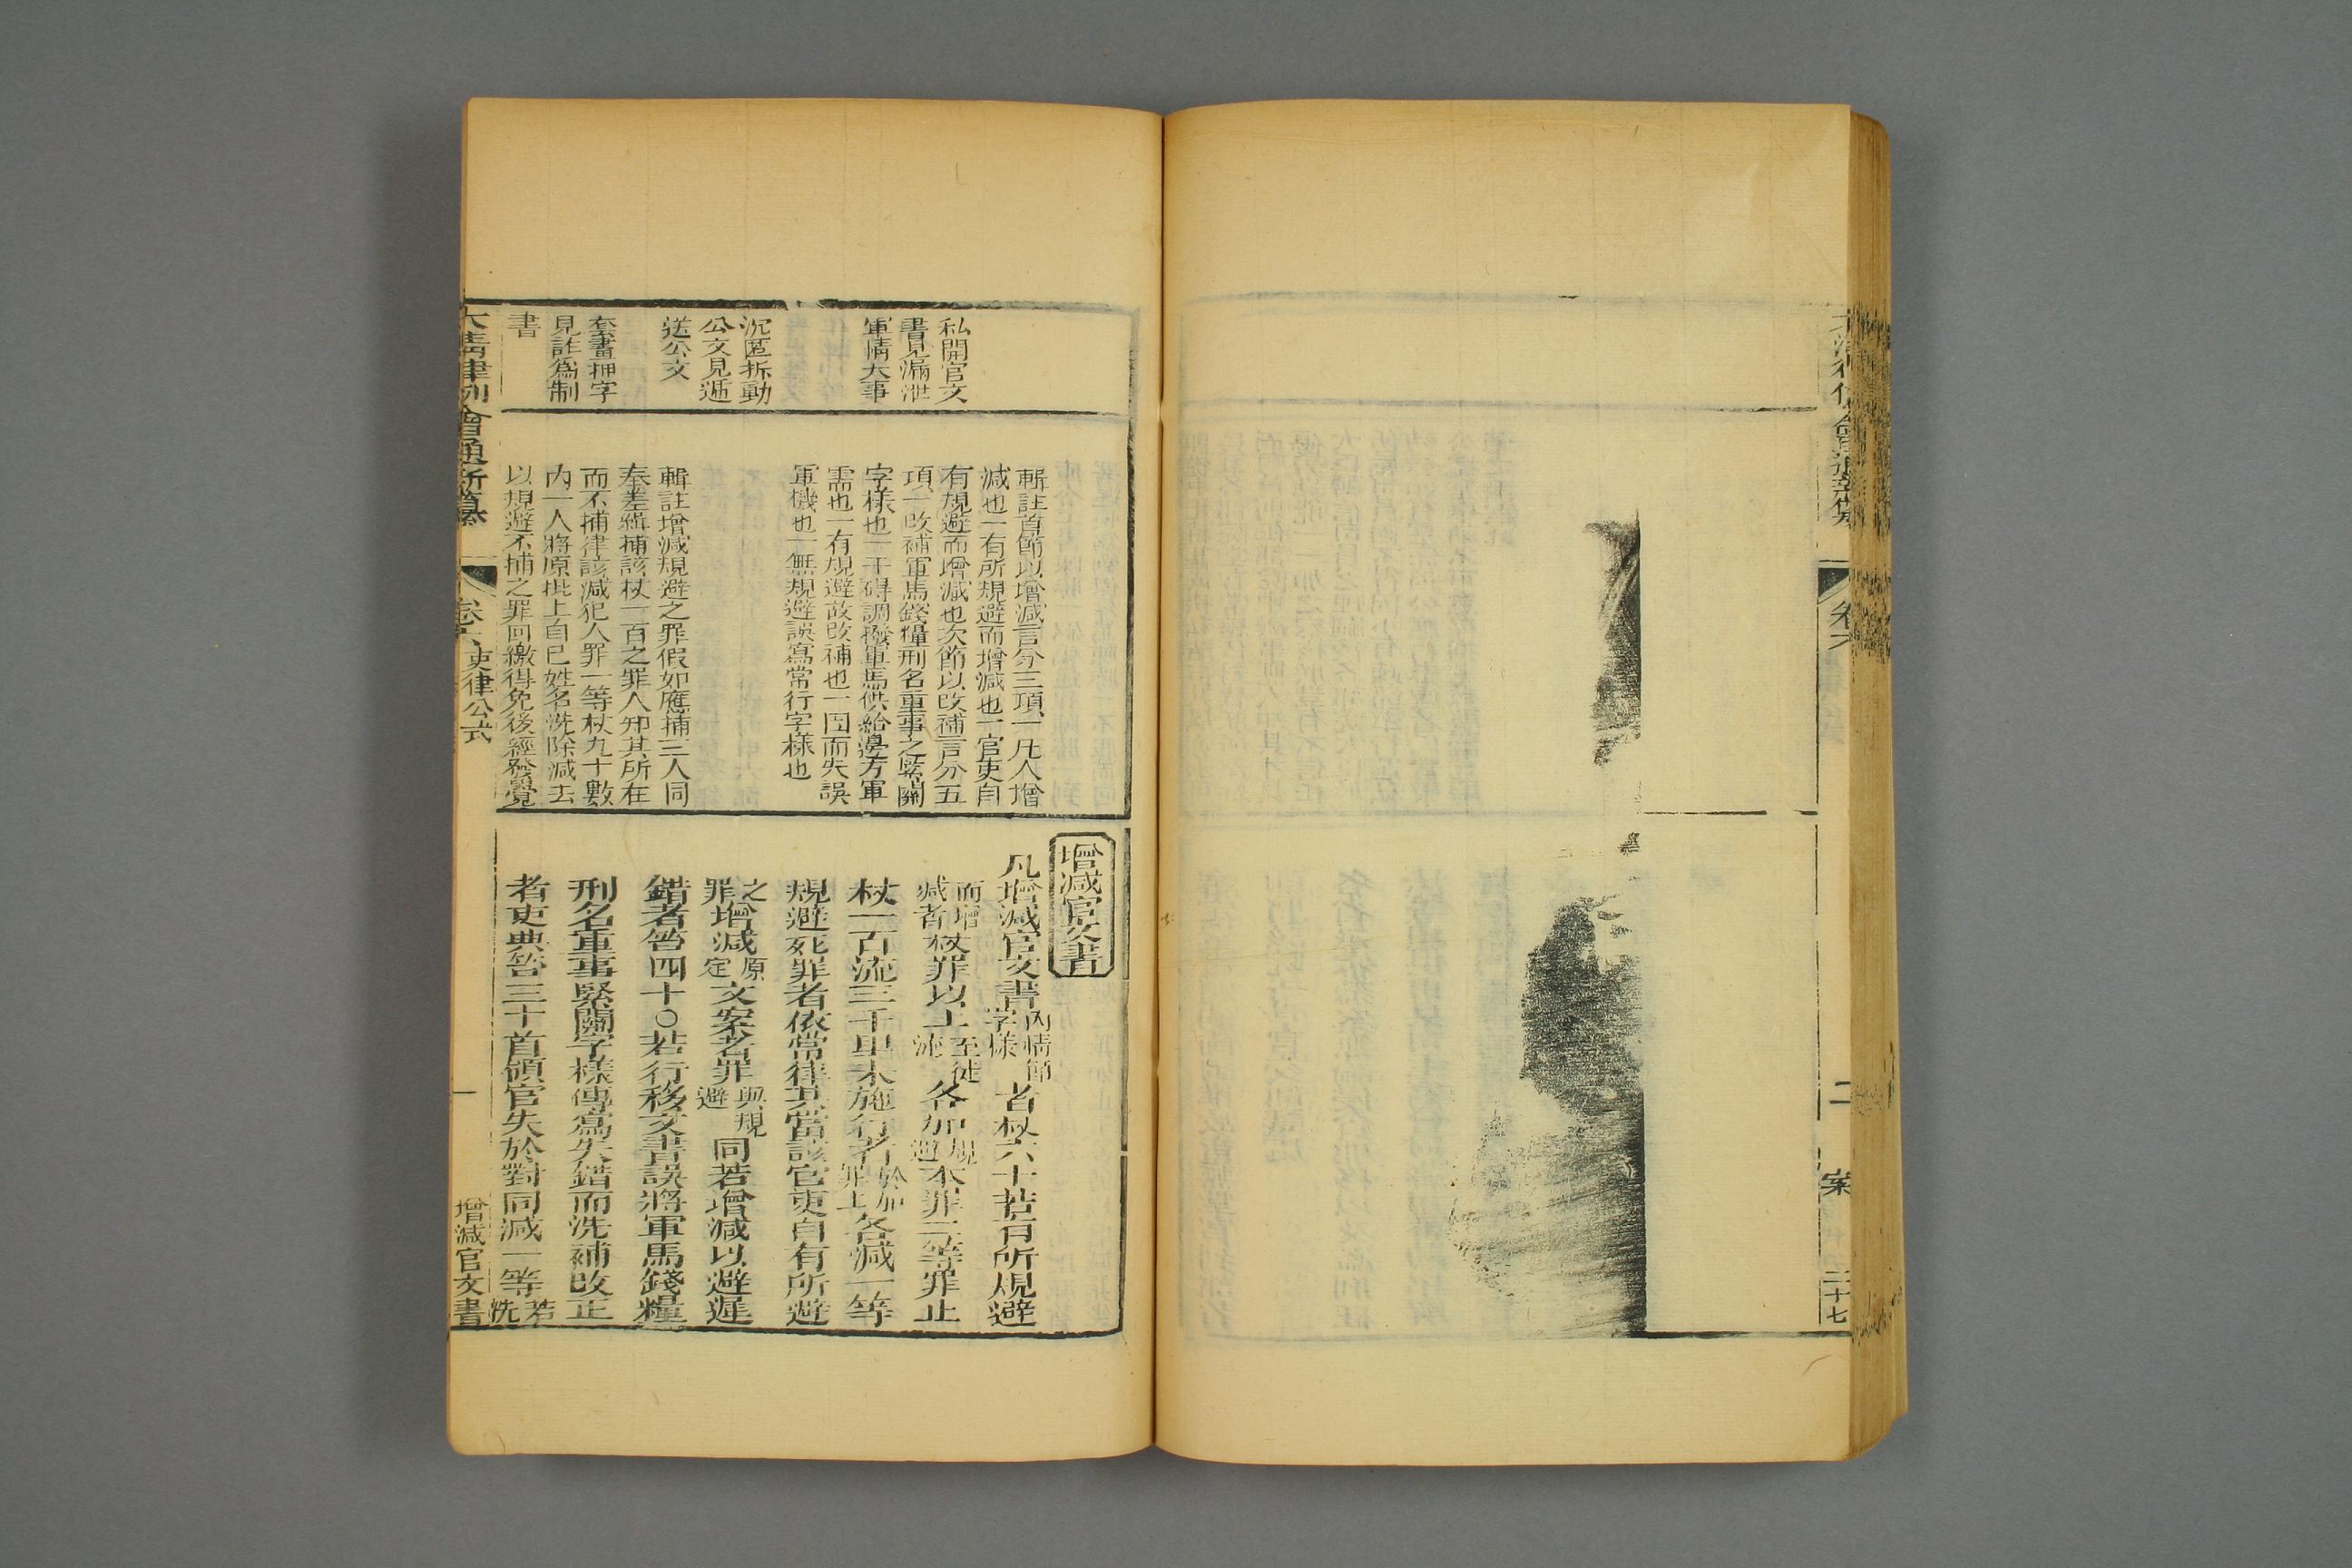 卷六
二
案
二十七
私開官文
書見漏泄
軍情大事
沉匿拆動
公文見遞
送公文
套畫押字
見詐爲制
書
輯註首節以增減言分三項一凡人增
減也一有所規避而增減也一官吏自
有規避而增減也次節以改補言分五
項一改補軍馬錢糧刑名重事之緊關
字樣也一干碍調撥軍馬供給邊方軍
需也一有規避故改補也一因而失誤
軍機也一無規避誤寫常行字樣也
輯註增減規避之罪假如應捕三人同
奉差緝捕該杖一百之罪人知其所在
而不捕律該減犯人罪一等杖九十數
内一人將原批上自己姓名洗除減去
以規避不捕之罪回繳得免後經發覺
增減官文書
凡增減官文書內情節字樣者杖六十若有所規避
而增減者杖罪以上至徒流各加規避本罪二等罪止
杖一百流三千里未施行者於加罪上各減一等
規避死罪者依常律其當該官吏自有所避
之罪增減原定文案者罪與規避同若增減以避遲
錯者笞四十○若行移文書誤將軍馬錢糧
刑名重事緊關字樣傳寫失錯而洗補改正
者吏典笞三十首領官失於對同減一等若洗
大清律例會通新纂
卷六
吏律公式
增減官文書